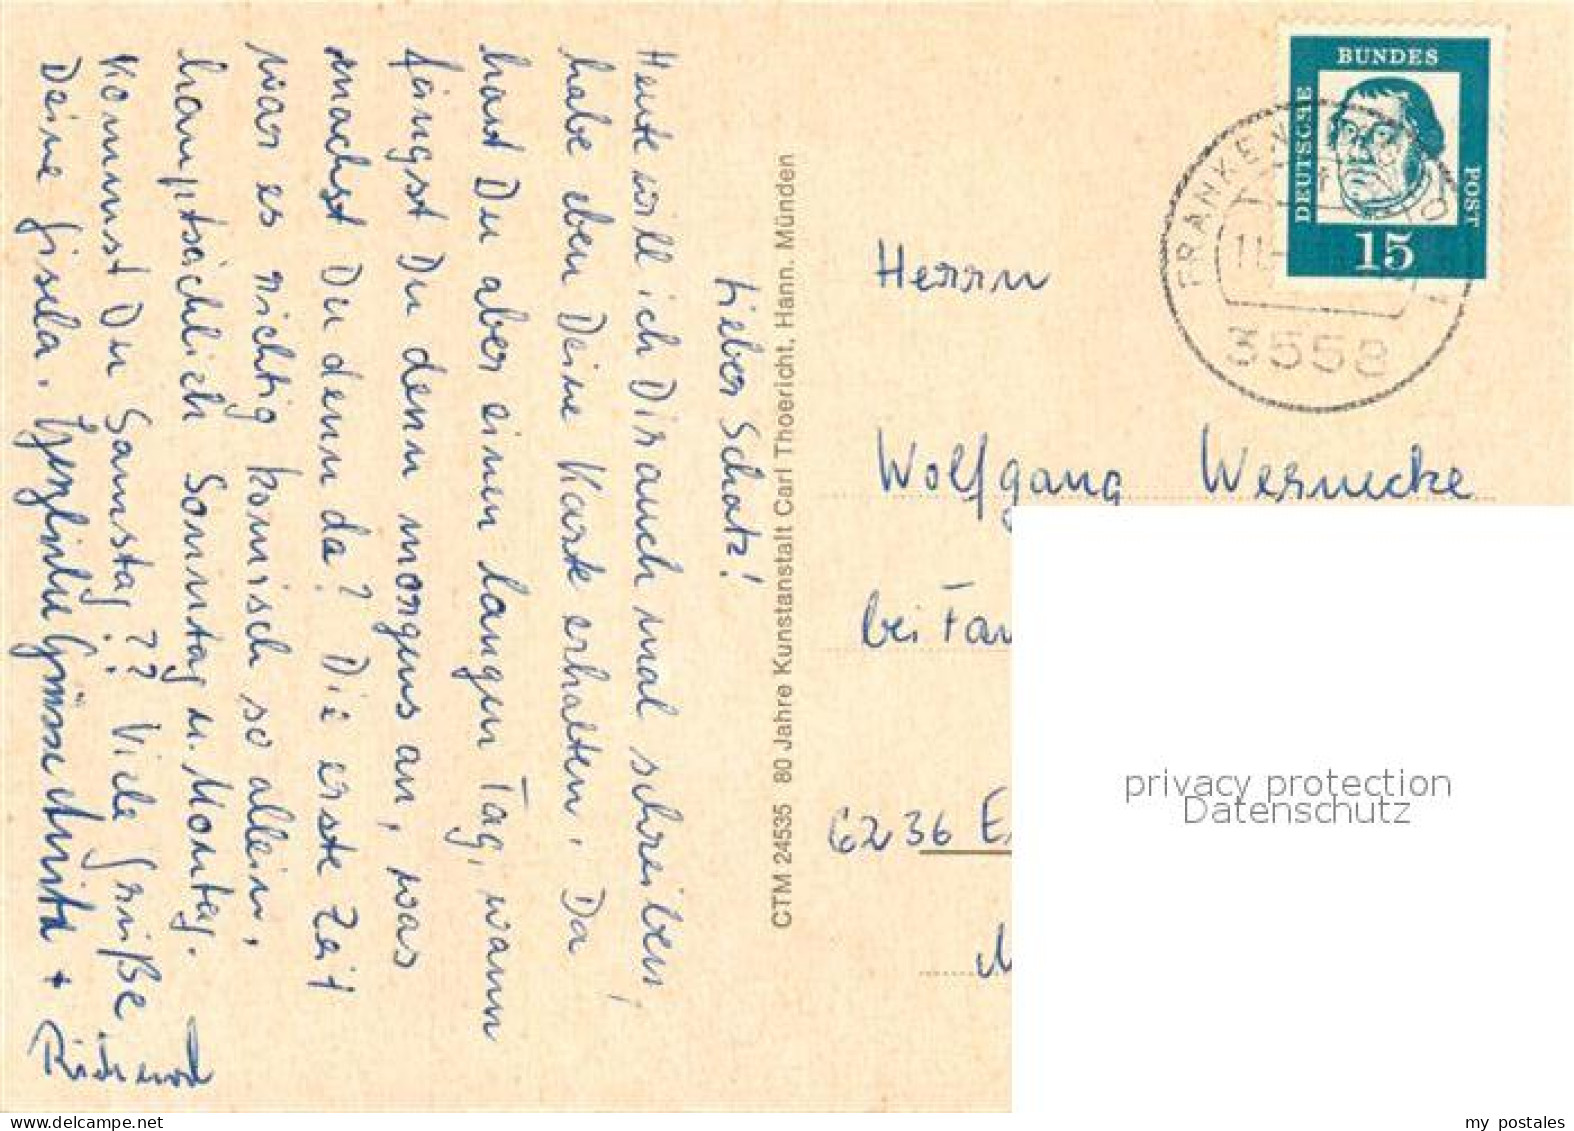 Lieber Schatz!
Heute will ich Dir auch mal schreiben,
habe eben Deine Karte erhalten. Da
hast Du aber einen langen Tag, wann
fängst Du denn morgens an, was
machst Du denn da? Die erste Zeit
war es richtig komisch so allein,
hauptsächlich Sonntag u. Montag.
Kommst Du Samstag?? Viele Grüße
Deine Gisela. Herzliche Grüsse Anita +
CTM 24535 80 Jahre Kunstanstalt Carl Thoericht, Hann. Münden
DEUTSCHE
BUNDES
POST
15
FRANKEN
11.
3558
Herrn
Wolfgang Wernecke
bei Fam
6236 Es
privacy protection
Datenschutz
my-postcard.eu
my postales